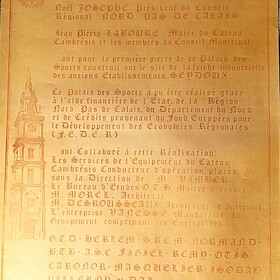 Noël JOSEPHE Président du Conseil
Régional NORD PAS DE CALAIS
Jean Pierre LABOURE Maire du Cateau
Cambrésis et les membres du Conseil Municipal
ont posé la première pierre de ce Palais des
Sports construit sur le site de la friche industrielle
des anciens Etablissements SEYDOUX
Ce Palais des Sports a pu être réalisé grâce
à l'aide financière de l'Etat, de la Région
Nord Pas de Calais, du Département du Nord
et de Crédits provenant du Fond Européen pour
le Développement des Economies Régionales
(F.E.D.E.R)
ont Collaboré à cette Réalisation:
Les Services de l'Equipement du Cateau
Cambrésis Conducteur d'opération, placés
sous la Direction de M.
Le Bureau d'Etudes O.T.H. Maître d'œuvre
M. MOREL, Architecte
M. DESROUSSEAUX, Architecte
L'entreprise VANESSE Mandataire du
Groupement comprenant les Entreprises
O.T.D - HERLEM - S.R.E.M - NORMAND -
B.T.B - A.S.C - FIGIEL - REMY - OTIS -
CARONOR - MASQUELIER - ISODAL